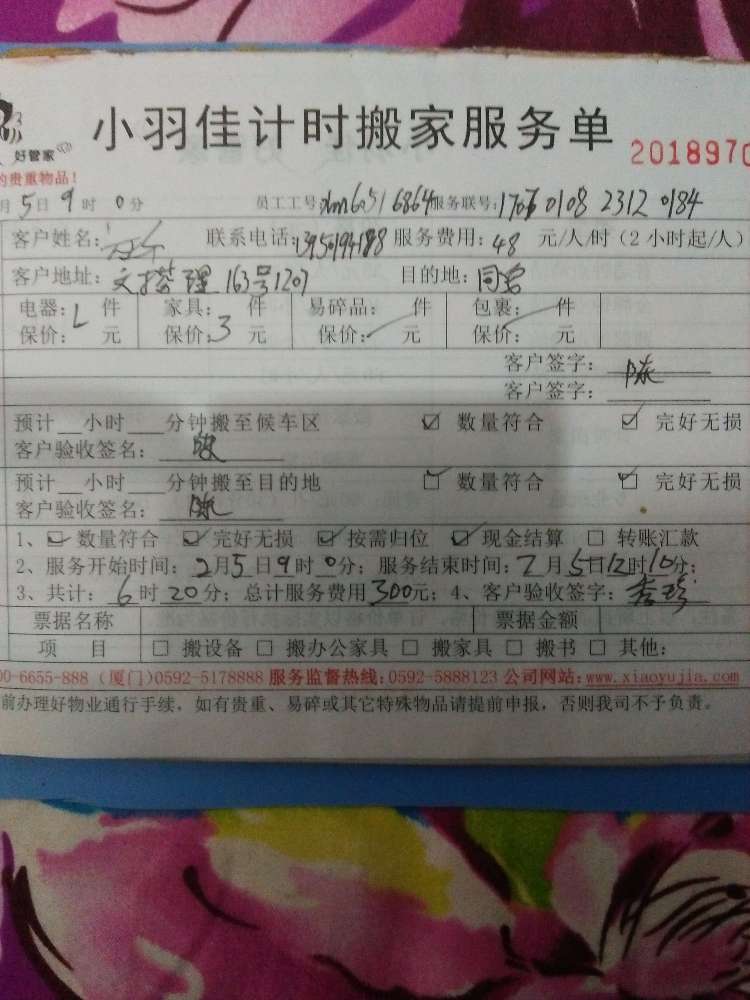 小羽佳计时搬家服务单
好管家
2018970
的贵重物品！
月5日9时0分 员工工号：xm60516864 服务联号：1706 0108 2312 0184
客户姓名： 联系电话： 服务费用：48 元/人/时（2小时起/人）
客户地址：文塔理163号1207 目的地：同安
电器： 件 家具： 件 易碎品： 件 包裹： 件
保价： 元 保价：3 元 保价： 元 保价： 元
客户签字：陈
客户签字：
预计__小时___分钟搬至候车区 ☑ 数量符合 ☑ 完好无损
客户验收签名：陈
预计__小时___分钟搬至目的地 ☑ 数量符合 ☑ 完好无损
客户验收签名：陈
1、☑ 数量符合 ☑ 完好无损 ☑ 按需归位 ☑ 现金结算 □ 转账汇款
2、服务开始时间：2月5日9时0分；服务结束时间：2月5日12时10分；
3、共计：6时20分；总计服务费用300元；4、客户验收签字：
票据名称 票据金额
项 目 □ 搬设备 □ 搬办公家具 □ 搬家具 □ 搬书 □ 其他：
00-6655-888（厦门）0592-5178888 服务监督热线：0592-5888123 公司网站：www.xiaoyujia.com
前办理好物业通行手续，如有贵重、易碎或其它特殊物品请提前申报，否则我司不予负责。